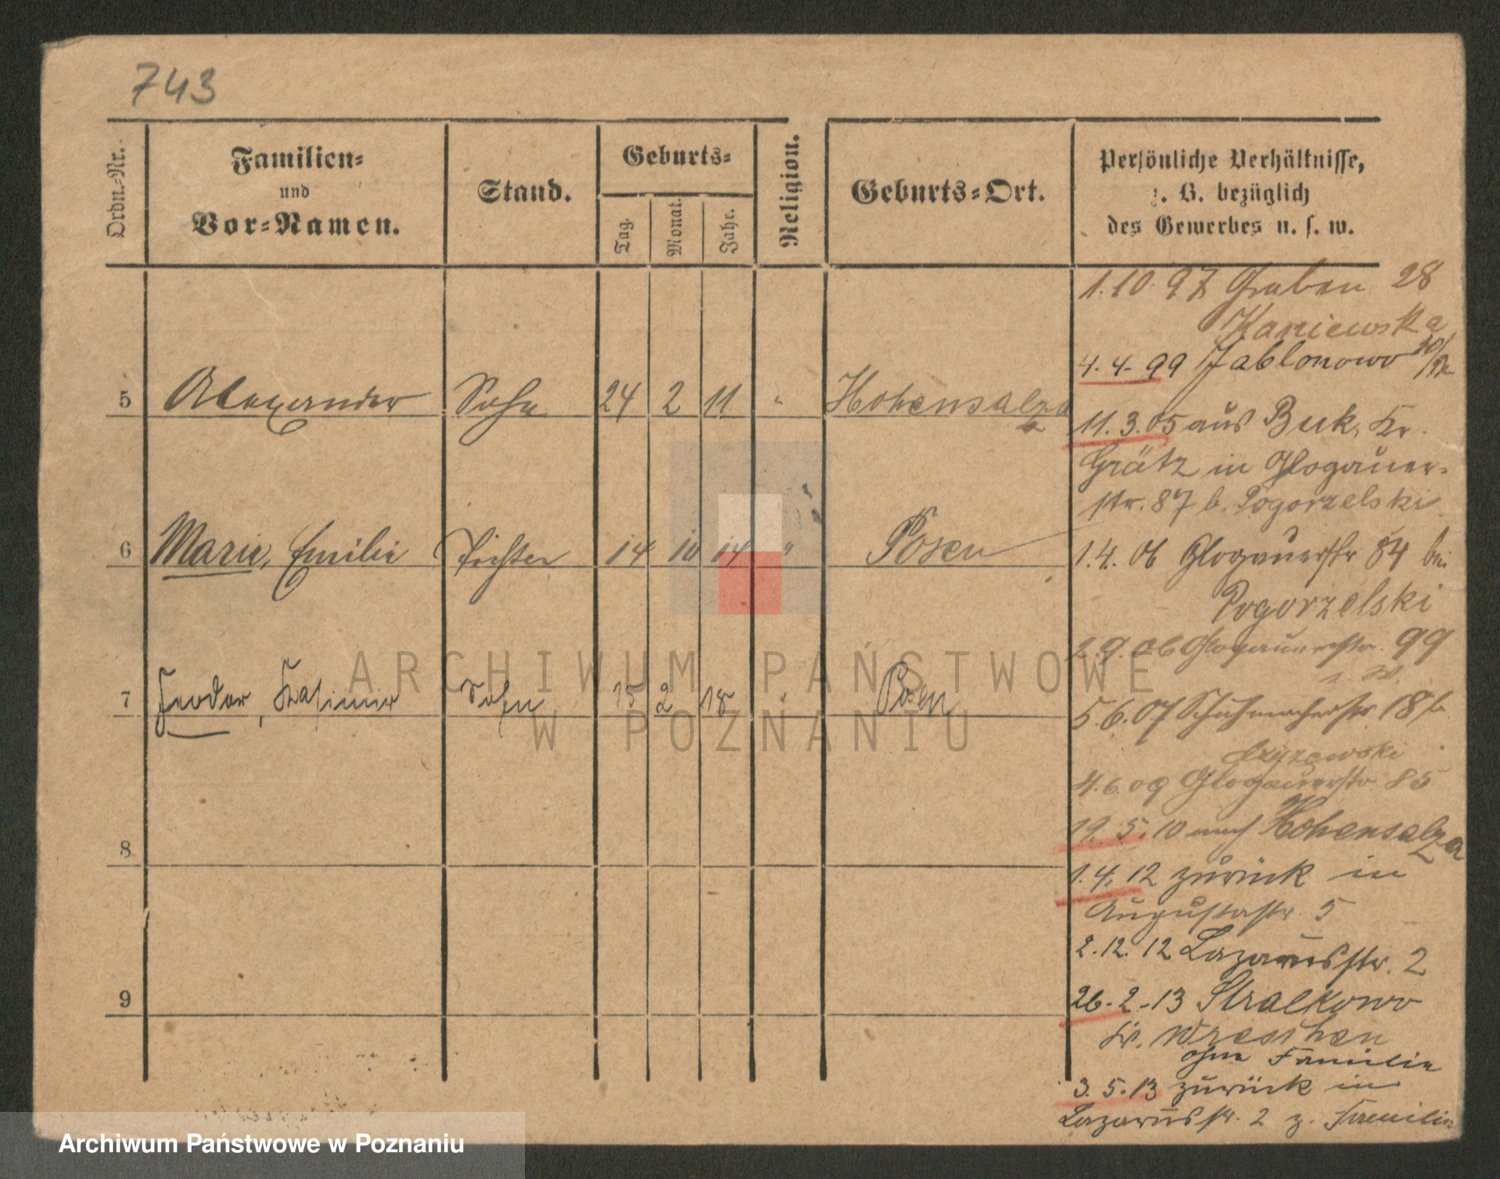 743
Ordn.-Nr.
Familien-
und
Vor-Namen.
Stand.
Geburts-
Tag.
Monat.
Jahr.
Religion.
Geburts-Ort.
Persönliche Verhältnisse,
z. B. bezüglich
des Gewerbes u. s. w.
5 Alexander Sohn 24 2 11 " Hohensalza
6 Marie, Emilie Tochter 14 10 14 " Posen
7 Teodor, Kasimir Sohn 15 2 18 " Posen
8
9
1.10.97 Graben 28
4.4.99 Jablonowo
11.3.05 aus Buk, Kr.
Grätz in Glogauer-
str. 87 b. Pogorzelski
1.4.06 Glogauerstr 84 bei
Pogorzelski
2.9.06 Glogauerstr. 99
5.6.07 Schuhmacherstr 18 b.
4.6.09 Glogauerstr 85
19.5.10 nach Hohensalza
1.4.12 zurück in
Augustastr. 5
2.12.12 Lazarusstr. 2
26.2.13 Stralkowo
Kr. Wreschen
ohne Familie
3.5.13 zurück in
Lazarusstr. 2 z. Familie
ARCHIWUM PAŃSTWOWE
W POZNANIU
Archiwum Państwowe w Poznaniu